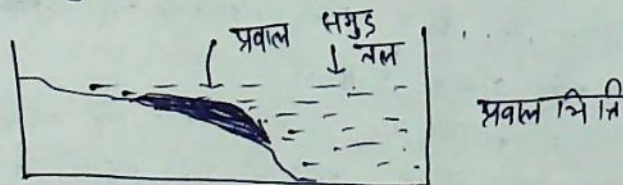 प्रवाल समुद्र
तल
प्रवाल भित्ति